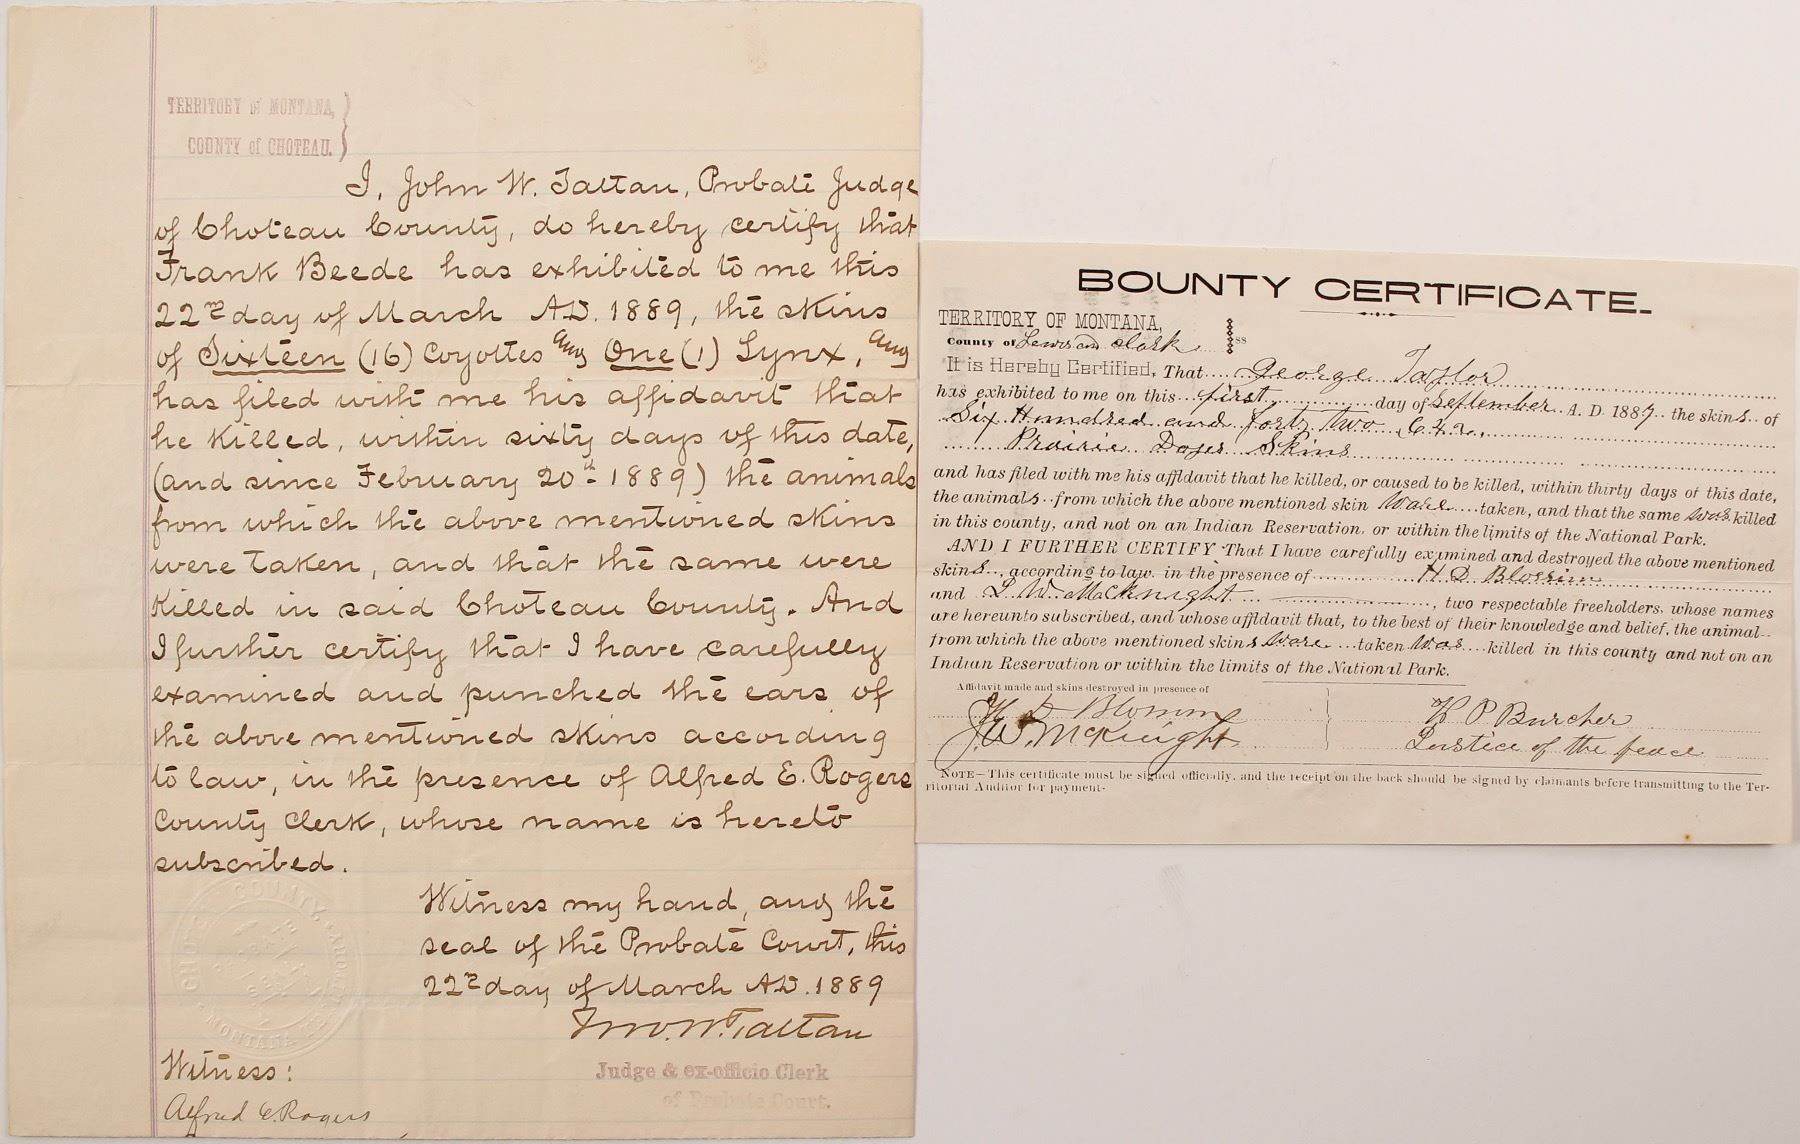 TERRITORY of MONTANA,
COUNTY of CHOTEAU.
I, John W. Tattan, Probate Judge
of Choteau County, do hereby certify that
Frank Beede has exhibited to me this
22nd day of March A.D. 1889, the skins
of Sixteen (16) Coyottes and One (1) Lynx, and
has filed with me his affidavit that
he killed, within sixty days of this date,
(and since February 20th 1889) the animals
from which the above mentioned skins
were taken, and that the same were
killed in said Choteau County. And
I further certify that I have carefully
examined and punched the ears of
the above mentioned skins according
to law, in the presence of Alfred E. Rogers
County Clerk, whose name is hereto
subscribed.
Witness my hand, and the
seal of the Probate Court, this
22nd day of March A.D. 1889
Jno. W. Tattan
Judge & ex-officio Clerk
of Probate Court.
Witness:
Alfred E. Rogers
COUNTY
MONTANA
BOUNTY CERTIFICATE.
TERRITORY OF MONTANA,
County of Lewis and Clark ss
It is Hereby Certified, That George Taylor
has exhibited to me on this first day of September A. D. 1887 the skins of
Six Hundred and forty two 642
Prairie Doges Skins
and has filed with me his affidavit that he killed, or caused to be killed, within thirty days of this date,
the animals from which the above mentioned skin Ware taken, and that the same was killed
in this county, and not on an Indian Reservation, or within the limits of the National Park.
AND I FURTHER CERTIFY That I have carefully examined and destroyed the above mentioned
skins, according to law, in the presence of H. D.
and J. W. MacKnight, two respectable freeholders, whose names
are hereunto subscribed, and whose affidavit that, to the best of their knowledge and belief, the animal
from which the above mentioned skins Ware taken Was killed in this county and not on an
Indian Reservation or within the limits of the National Park.
Affidavit made and skins destroyed in presence of
H D
J. W. McKnight
H P Burcher
Justice of the peace
NOTE—This certificate must be signed officially, and the receipt on the back should be signed by claimants before transmitting to the Ter-
ritorial Auditor for payment.